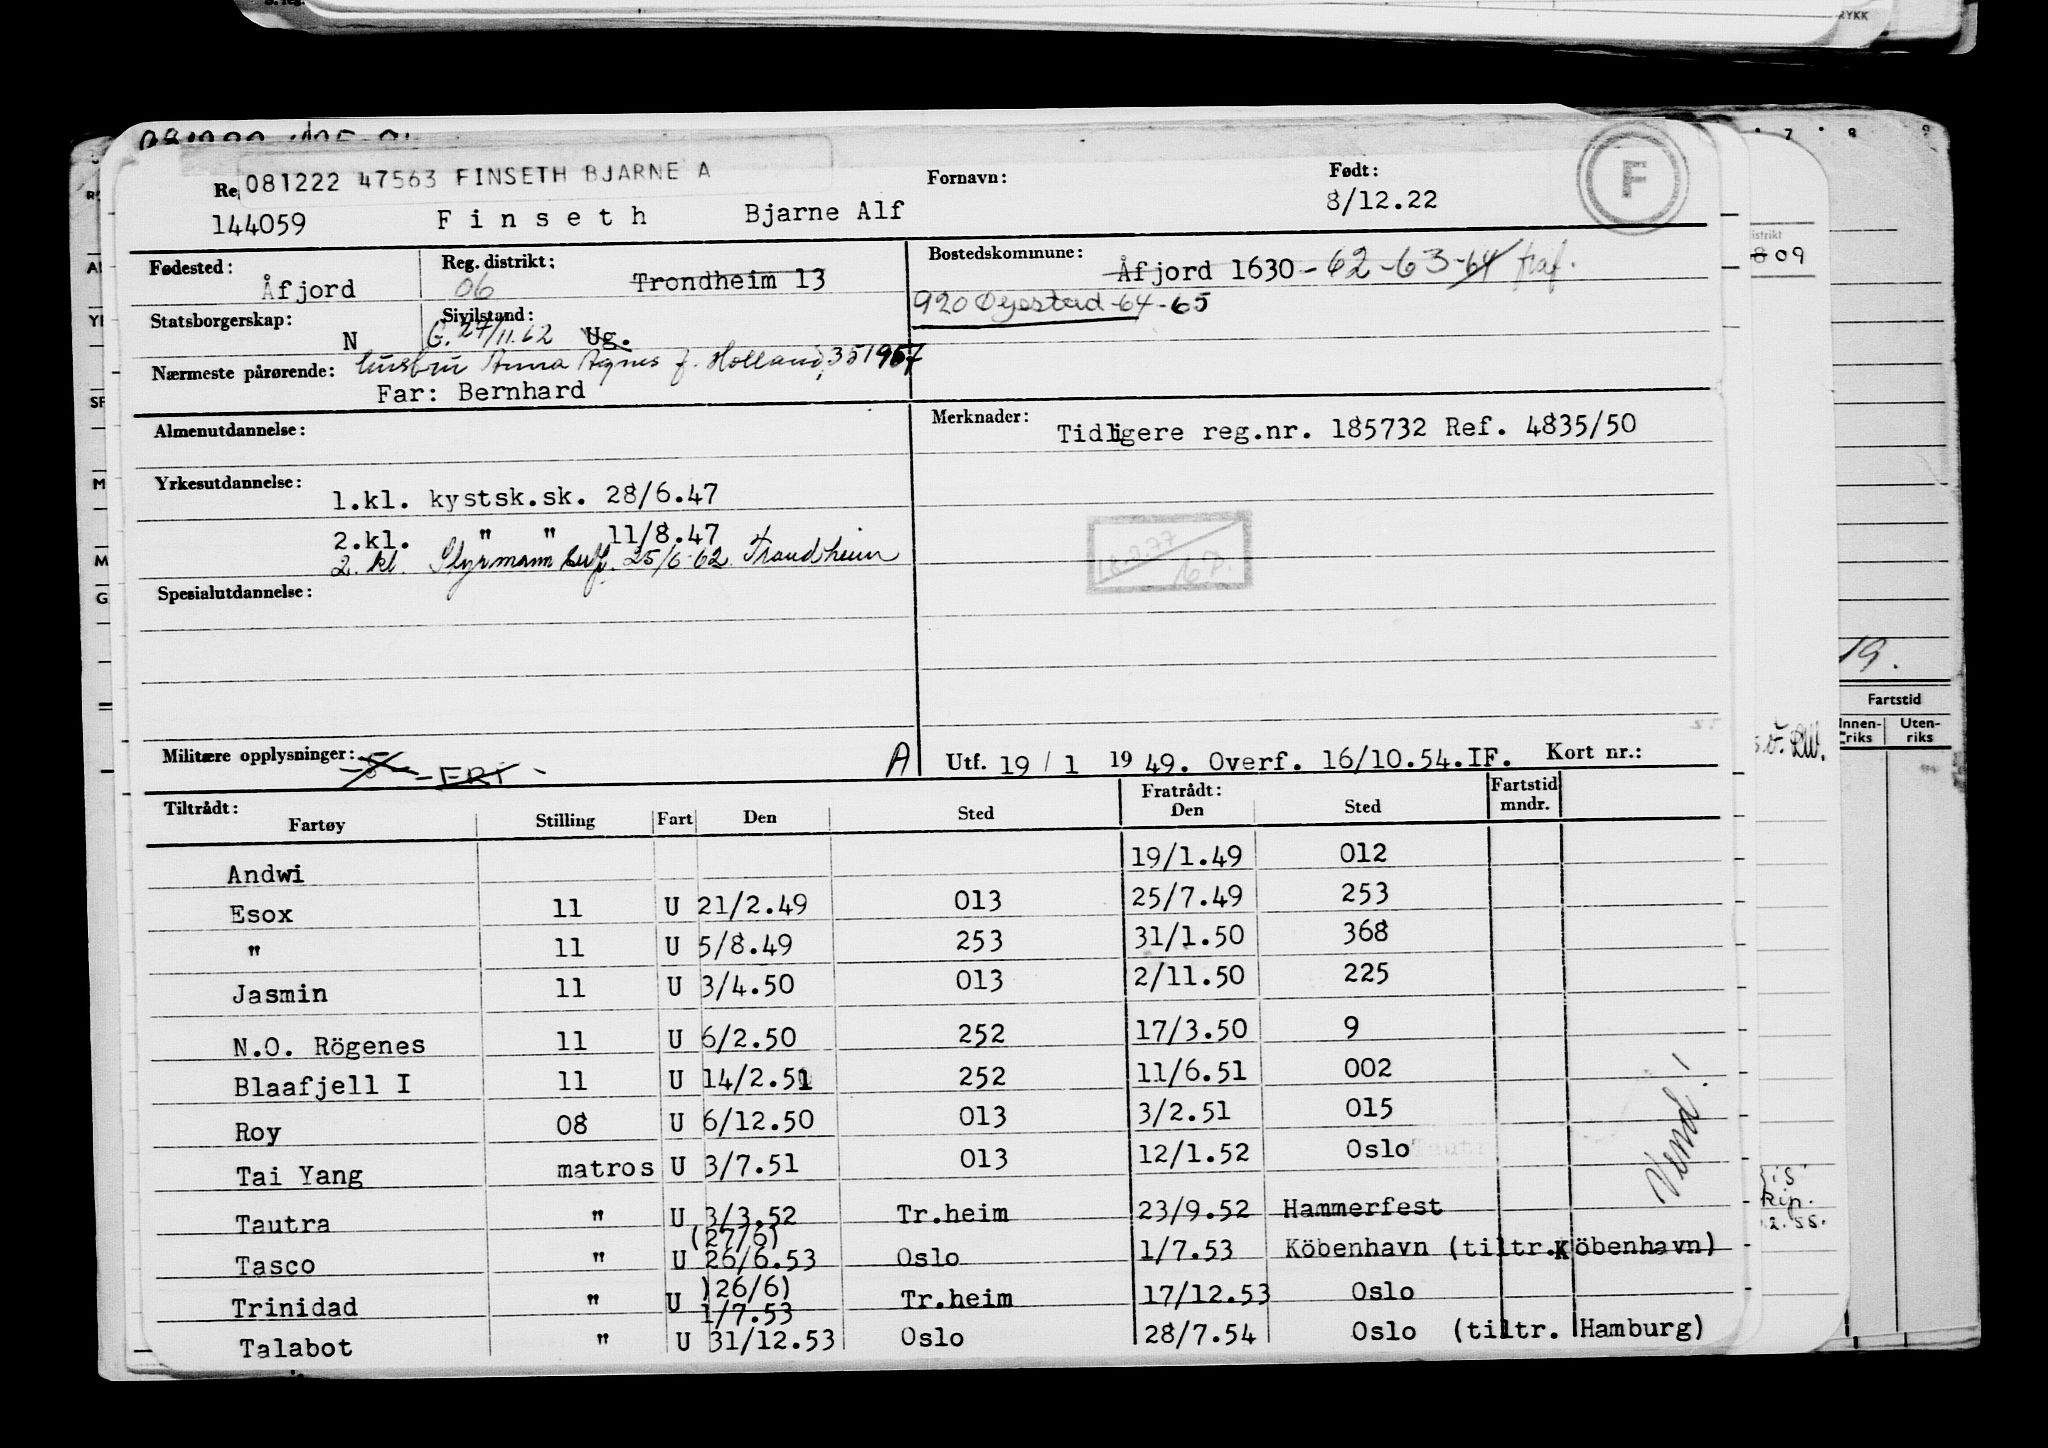 RYKK
081222 47563 FINSETH BJARNE A
Re
Fornavn:
Født:
F
144059 Finseth Bjarne Alf 8/12.22
Fødested: Åfjord
Reg. distrikt: 06 Trondheim 13
Bostedskommune: Åfjord 1630 - 62 - 63 - 64 fraf.
920 Øyestad - 64 - 65
Statsborgerskap: N
Sivilstand: G. 27/11.62 Ug.
Nærmeste pårørende: hustru Anna Agnes f. Holland, 351957
Far: Bernhard
Almenutdannelse:
Merknader: Tidligere reg.nr. 185732 Ref. 4835/50
Yrkesutdannelse: 1.kl. kystsk.sk. 28/6.47
2.kl. " " 11/8.47
2. kl. Styrmann 25/6-62. Trondheim
18.2.77
Spesialutdannelse:
Militære opplysninger:
A Utf. 19 / 1 1949. Overf. 16/10.54.IF. Kort nr.:
Tiltrådt: Fartøy Stilling Fart Den Sted Fratrådt: Den Sted Fartstid mndr.
Andwi 19/1.49 012
Esox 11 U 21/2.49 013 25/7.49 253
" 11 U 5/8.49 253 31/1.50 368
Jasmin 11 U 3/4.50 013 2/11.50 225
N.O. Rögenes 11 U 6/2.50 252 17/3.50 9
Blaafjell I 11 U 14/2.51 252 11/6.51 002
Roy 08 U 6/12.50 013 3/2.51 015
Tai Yang matros U 3/7.51 013 12/1.52 Oslo
Tautra " U 3/3.52 Tr.heim 23/9.52 Hammerfest
(27/6)
Tasco " U 26/6.53 Oslo 1/7.53 Köbenhavn (tiltr. Köbenhavn)
)26/6)
Trinidad " U 1/7.53 Tr.heim 17/12.53 Oslo
Talabot " U 31/12.53 Oslo 28/7.54 Oslo (tiltr. Hamburg)
Vend!
7 8 9
distrikt
809
19.
Fartstid
Innenriks Utenriks